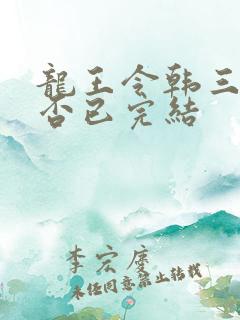 龍王令韩三
否已完結
李宏慶
未经同意禁止转载